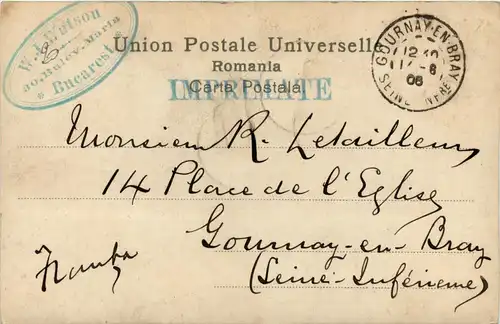 W. J. Watson
Bucarest
Union Postale Universelle
Romania
Carta Postala.
IMPRIMATE
GOURNAY-EN-BRAY
SEINE INFRE
06
Monsieur R. Letailleur
14 Place de l'Eglise
Gournay-en-Bray
(Seine-Inférieure)
Franța